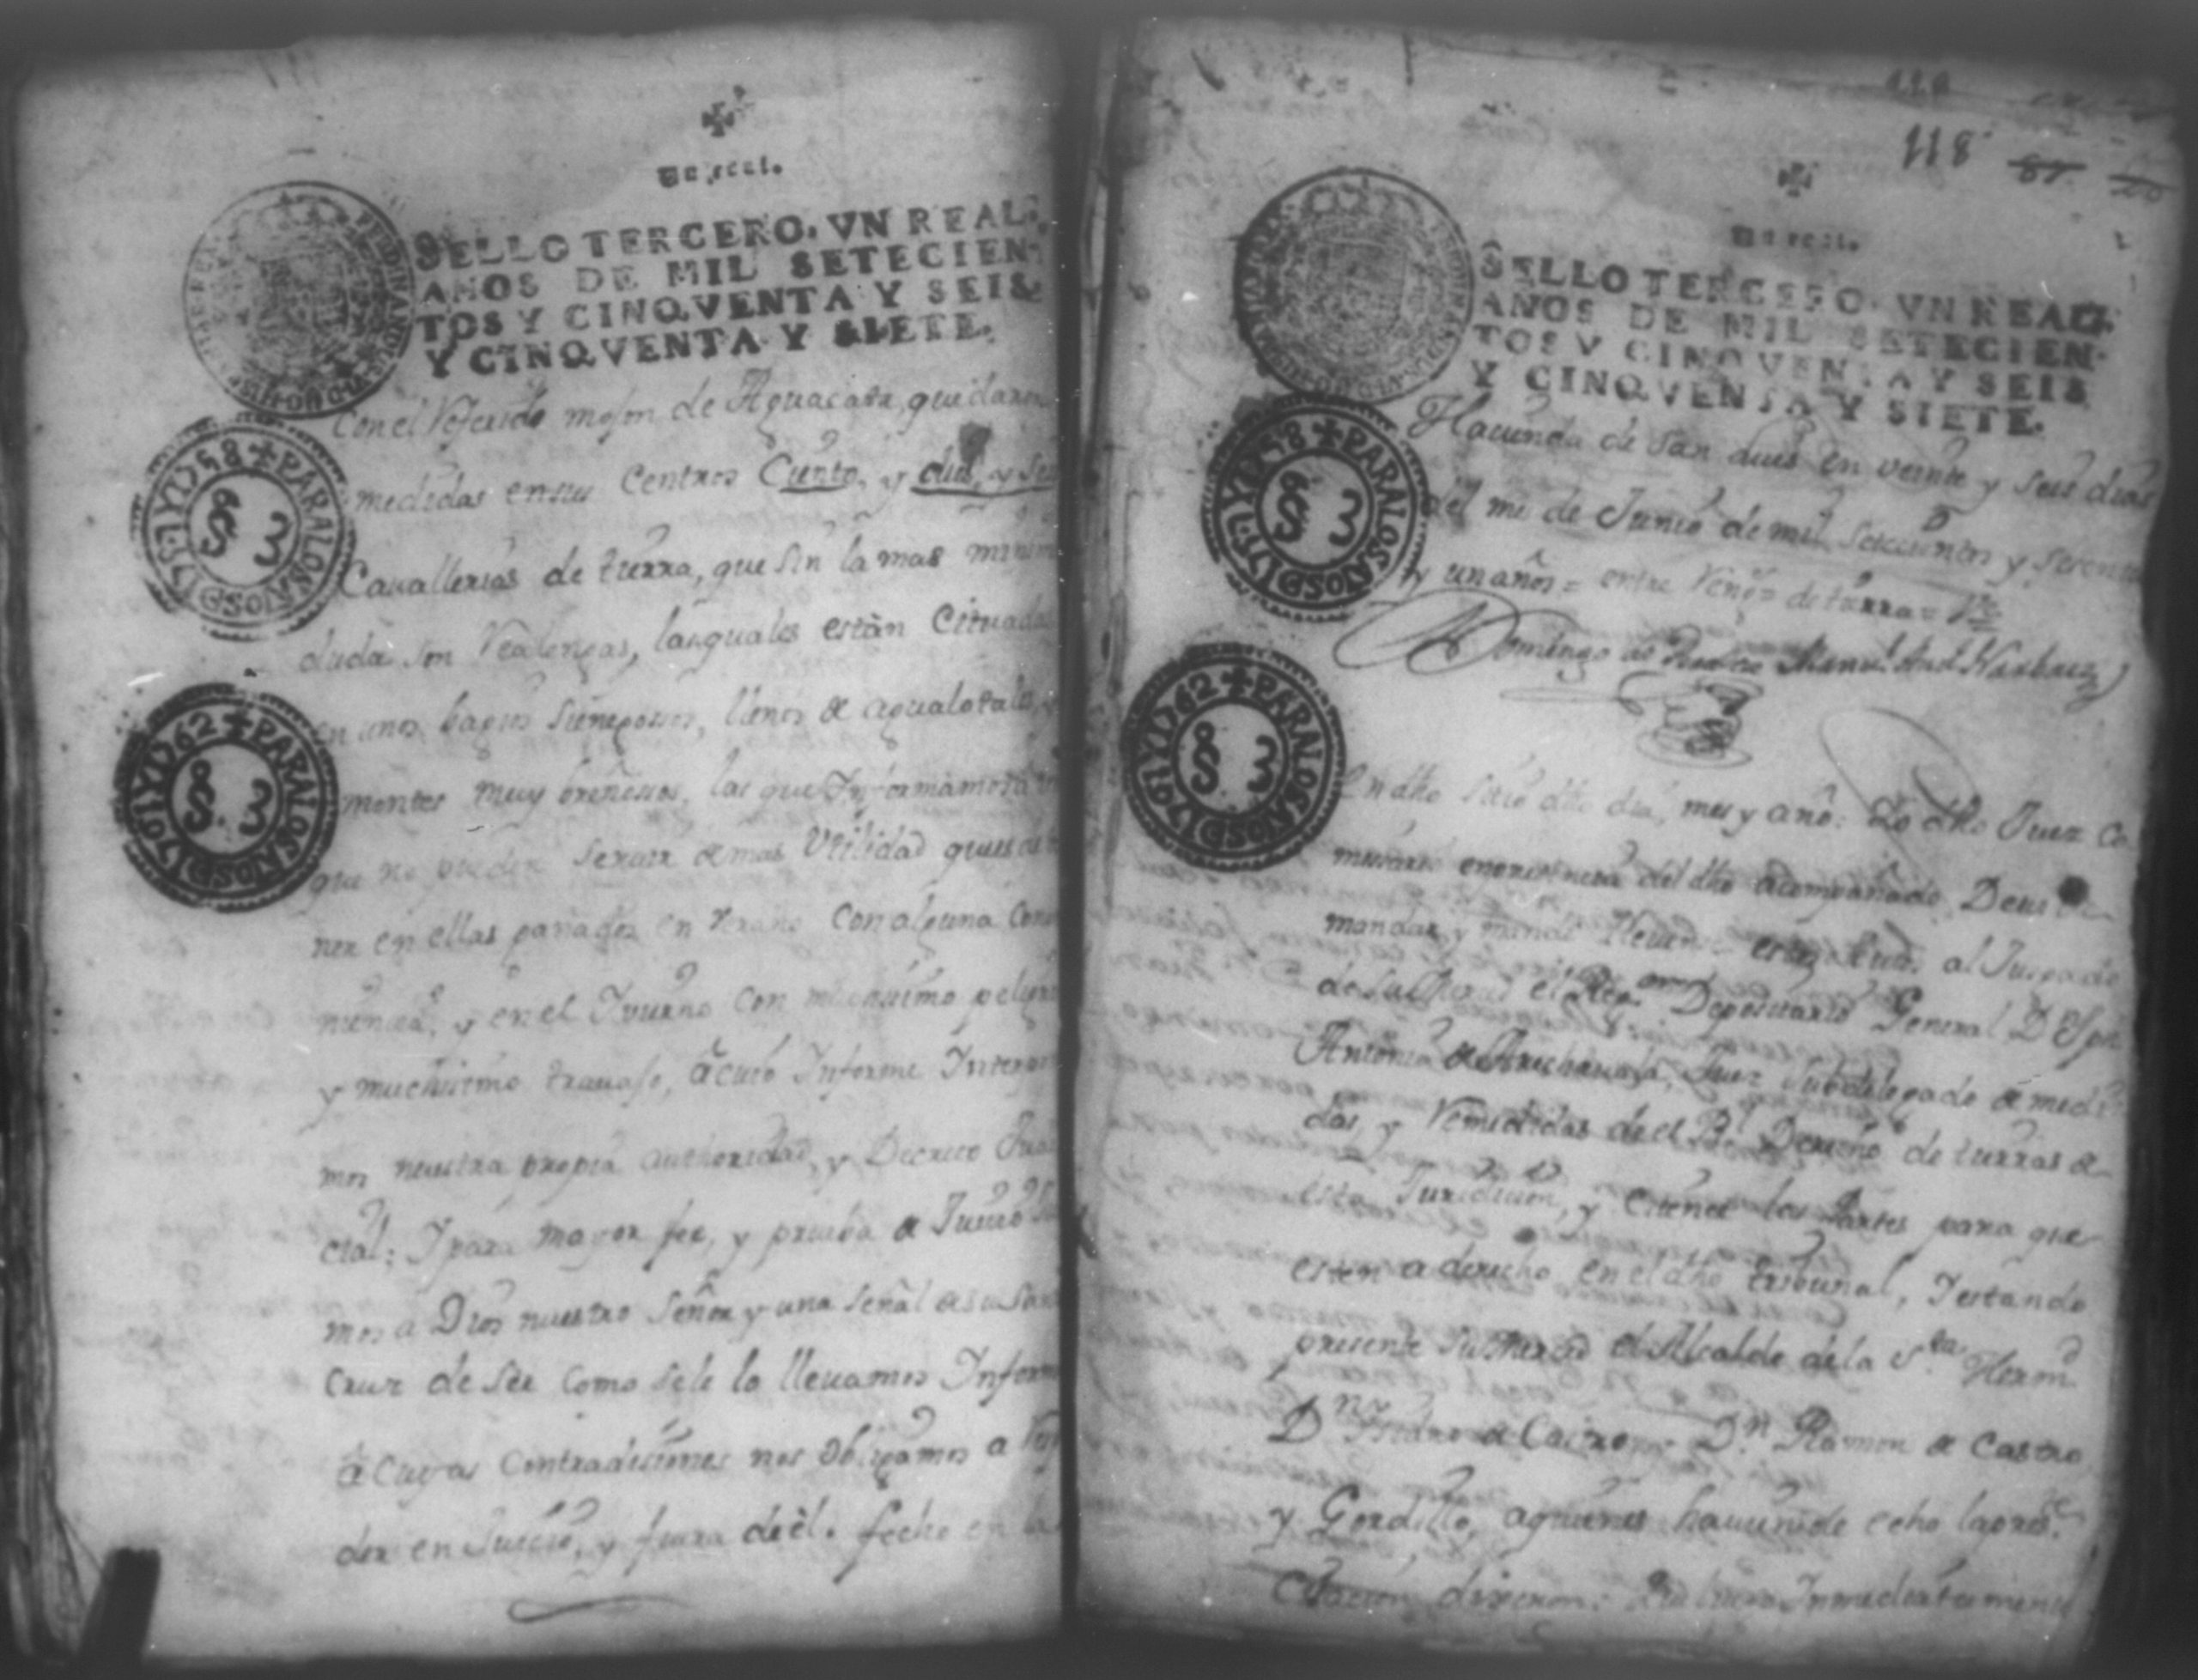 Un real.
SELLO TERCERO. VN REAL.
AÑOS DE MIL SETECIEN-
TOS Y CINQVENTA Y SEIS
Y CINQVENTA Y SIETE.
P.A LOS AÑOS D 1757 Y D 58
S 3
PARA LOS AÑOS D 1761 Y D 62
S 3
Con el referido mojon de Aguacata, quedaron
medidas en sus Centros Ciento, y dies, y seis
Cauallerias de tierra, que sin la mas minim
duda son Realengas, las quales están Cituadas
en unos bagios sienegosos, llenos de agualotales,
montes muy breñosos, las que Informamos
que no pueden seruir de mas Utilidad que
ner en ellas ganados en verano Con alguna Conv
niencia, y en el Yvierno con muchisimo peligro
y muchisimo trauajo, â cuio Informe Interpone
mos nuestra propia authoridad, y Decreto Judi
cial; Y para mayor fee, y prueba de Juicio
mos a Dios nuestro Señor y una señal de su Santa
Cruz de ser como se le lo lleuamos Informado
â Cuyas Contradisiones nos obligamos a Resp
der en Juicio, y fuera de él. fecho en la
118
Un real.
SELLO TERCERO. VN REAL.
AÑOS DE MIL SETECIEN-
TOS Y CINQVENTA Y SEIS
Y CINQVENTA Y SIETE.
PARA LOS AÑOS D 1757 Y D 58
S 3
PARA LOS AÑOS D 1761 Y D 62
S 3
Hacienda de San Luis en veinte y seis dias
del mes de Junio de mil setecientos y sesenta
y un años = entre Reng.s de tierra = Ve
Domingo de Man.l And.s Narbaez
En dho sitio dho dia, mes y año: Yo dho Juez Co
misario en presencia del dho acompañado Deuia
mandar, y mandé lleuense estos Autos al Juzgado
de su Merced el Reg.or Depositario General D.n
Antonio de Arechauala, Juez Subdelegado de medi
das, y Remedidas de el R.l Derecho de tierras de
esta Juridicion, y Citense las Partes para que
esten a derecho en el dho tribunal, Y estando
presente su Merced el Alcalde de la S.ta Herm.d
D.n Pedro de Cairo y D.n Ramon de Castro
y Gordillo, aquienes hauiendole echo la pres.te
Citacion dixeron: